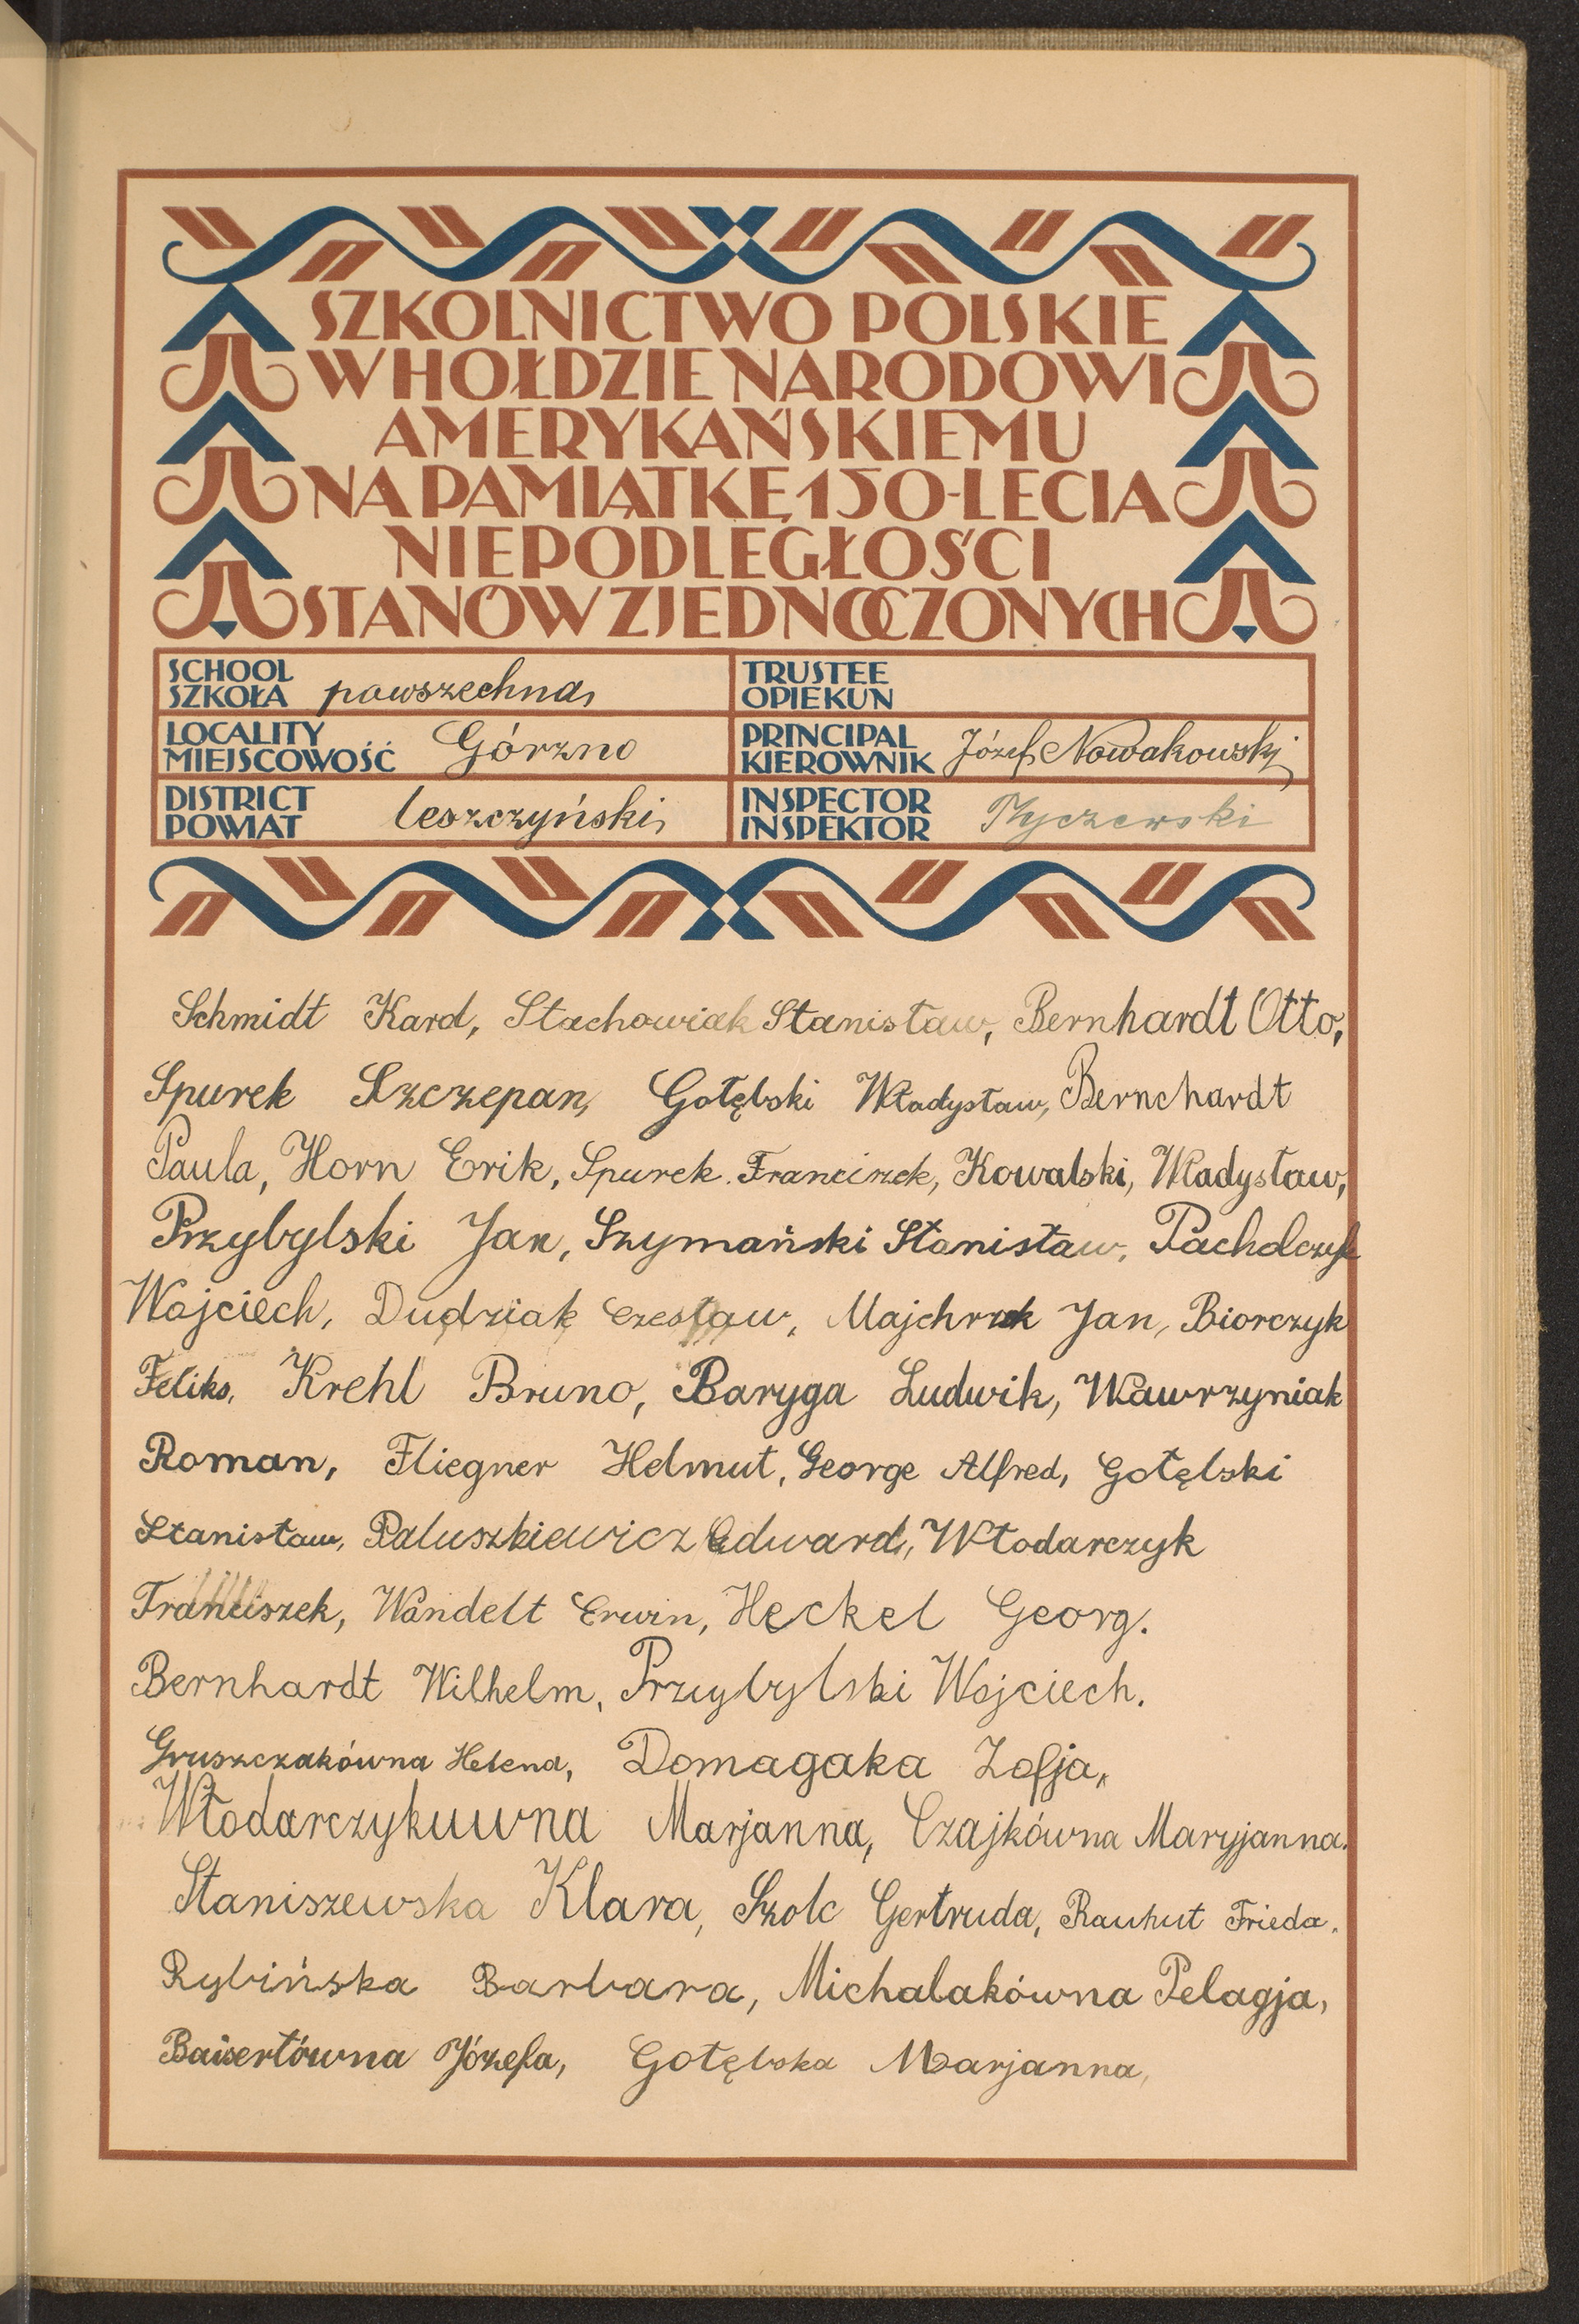 SZKOLNICTWO POLSKIE
W HOŁDZIE NARODOWI
AMERYKAŃSKIEMU
NA PAMIĄTKĘ 150-LECIA
NIEPODLEGŁOŚCI
STANÓW ZJEDNOCZONYCH
SCHOOL
SZKOŁA powszechna,
TRUSTEE
OPIEKUN
LOCALITY
MIEJSCOWOŚĆ Górzno
PRINCIPAL
KIEROWNIK Józef Nowakowski
DISTRICT
POWIAT leszczyński,
INSPECTOR
INSPEKTOR
Schmidt Kard, Stachowiak Stanisław, Bernhardt Otto,
Spurek Szczepan, Gołębski Władysław, Bernchardt
Paula, Horn Erik, Spurek Franciszek, Kowalski, Władysław,
Przybylski Jan, Szymański Stanisław, Pacholczyk
Wojciech, Dudziak Czesław, Majchrzak Jan, Biorczyk
Feliks, Krehl Bruno, Baryga Ludwik, Wawrzyniak
Roman, Fliegner Helmut, George Alfred, Gołębski
Stanisław, Paluszkiewicz Edward, Włodarczyk
Franciszek, Wandelt Erwin, Heckel Georg.
Bernhardt Wilhelm, Przybylski Wojciech.
Gruszczakówna Helena, Domagaka Zofja,
Włodarczykuwna Marjanna, Czajkówna Maryjanna.
Staniszewska Klara, Szolc Gertruda, Rauhut Frieda.
Rybińska Barbara, Michalakówna Pelagja,
Baisertówna Józefa, Gołębska Marjanna,